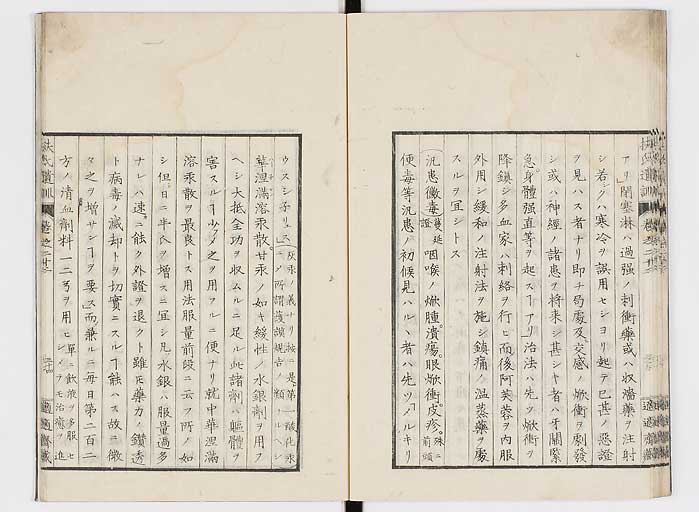 アリ閉塞淋ハ過強ノ刺衝藥或ハ收濇藥ヲ注射
シ若クハ寒冷ヲ誤用セシヨリ起テ已甚ノ惡證
ヲ見ハス者ナリ即チ局處及交感ノ焮衝ヲ劇發
シ或ハ神經ノ諸患ヲ將來シ甚シキ者ハ牙關緊
急身體强直等ヲ起スヿアリ治法ハ先ツ焮衝ヲ
降鎮シ多血家ハ刺絡ヲ行ヒ而後阿芙蓉ヲ內服
外用シ緩和ノ注射法ヲ施シ鎮痛ノ溫蒸藥ヲ處
スルヲ宜シトス
汎患黴毒蔓延證咽喉ノ焮腫潰瘍眼焮衝皮疹殊ニ前頭
便毒等汎患ノ初候見ハルヽ者ハ先ツメルキリ
扶氏遺訓 卷之二十三
ウスシ子リュス灰汞ノ義ナリ按ニ是第一酸化汞ニノ所謂護謨規告ノ類ールヘシ
華湼滿溶汞散甘汞ノ如キ緩性ノ水銀劑ヲ用フ
ヘシ大抵全功ヲ收ムルニ足ル此諸劑ハ軀體ヲ
害スルヿ少ク之ヲ用フルニ便ナリ就中華湼滿
溶汞散ヲ最良トス用法服量前段ニ云フ所ノ如
シ但日ニ半氏ヲ增スニ宜シ凡水銀ハ服量過多
ナレハ速ニ能ク外證ヲ退クト雖𪜈藥力ノ鑽透
ト病毒ノ滅却トヲ切實ニスルヿ能ハス故ニ微
々之ヲ增サンヿヲ要ス而兼ルニ每日第二百二
方ノ清血劑料一二ヲ用ヒ單ニ飲液ヲ多服セシメヲモ治癒ヲ進
扶氏遺訓 卷之二十三